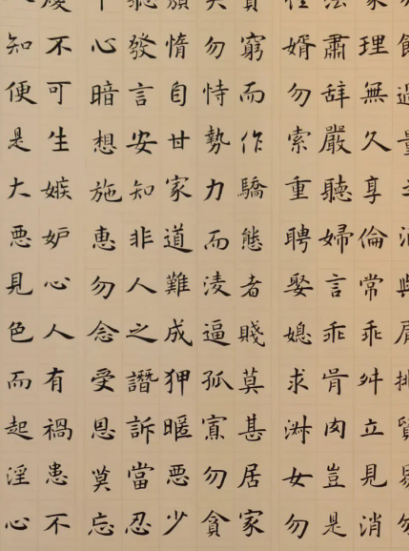 飲過量之酒與肩挑貿易勿
家理無久享倫常乖舛立見消
法肅辭嚴聽婦言乖骨肉豈是
佳婿勿索重聘娶媳求淑女勿
貧窮而作驕態者賤莫甚居家
勿恃勢力而凌逼孤寡勿貪
頹惰自甘家道難成狎暱悪少
聽發言安知非人之譖訴當忍
平心暗想施惠勿念受恩莫忘
慶不可生嫉妒心人有禍患不
人知便是大悪見色而起淫心